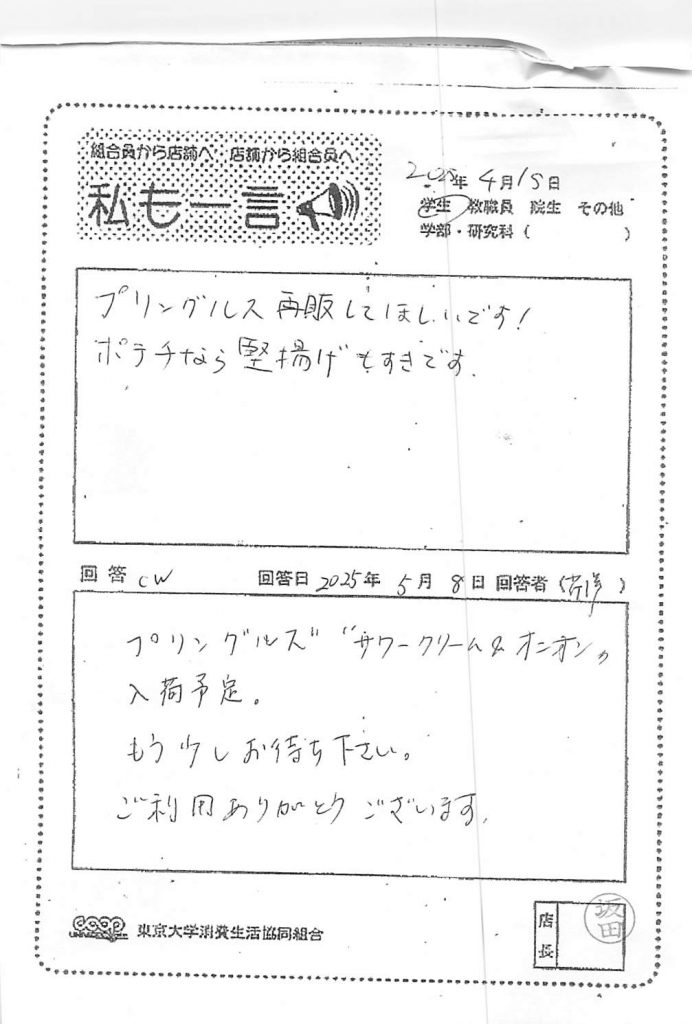 組合員から店舗へ 店舗から組合員へ
私も一言
年 4月15日
学生 教職員 院生 その他
学部・研究科( )
プリングルス再販してほしいです!
ポテチなら堅揚げもすきです.
回答 CW 回答日 2025年 5月 8日 回答者( )
プリングルズ "サワークリーム&オニオン"
入荷予定。
もう少しお待ち下さい。
ご利用ありがとうございます.
coop
UNIV.COOP
東京大学消費生活協同組合
店長
坂田